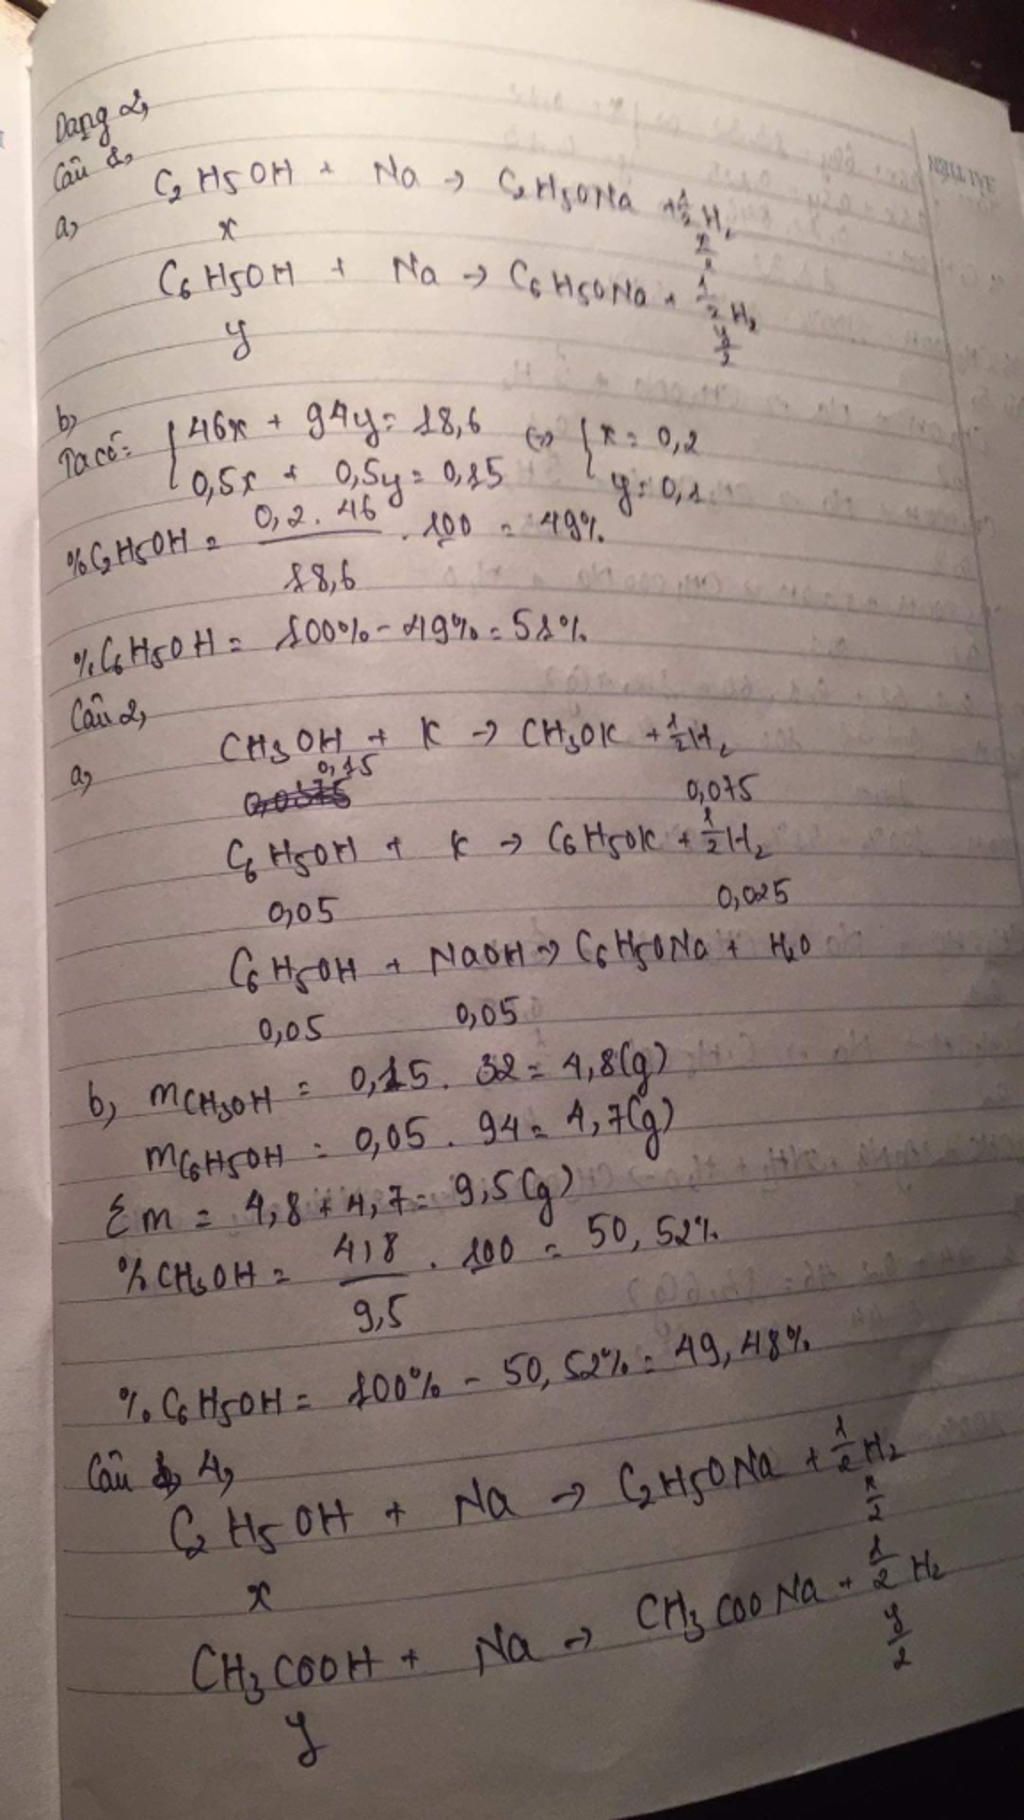 Dạng 2,
Câu 1,
a, C2H5OH + Na → C2H5ONa + 1/2 H2
x x/2
C6H5OH + Na → C6H5ONa + 1/2 H2
y y/2
b,
Ta có: { 46x + 94y = 18,6 <=> { x = 0,2
0,5x + 0,5y = 0,15 y = 0,1
%C2H5OH = 0,2 . 46 / 18,6 . 100 = 49%
%C6H5OH = 100% - 49% = 51%
Câu 2,
a, CH3OH + K → CH3OK + 1/2 H2
0,15 0,075
C6H5OH + K → C6H5OK + 1/2 H2
0,05 0,025
C6H5OH + NaOH → C6H5ONa + H2O
0,05 0,05
b, mCH3OH = 0,15 . 32 = 4,8(g)
mC6H5OH = 0,05 . 94 = 4,7(g)
Σm = 4,8 + 4,7 = 9,5(g)
%CH3OH = 4,8 / 9,5 . 100 = 50,52%
%C6H5OH = 100% - 50,52% = 49,48%
Câu 4,
C2H5OH + Na → C2H5ONa + 1/2 H2
x x/2
CH3COOH + Na → CH3COONa + 1/2 H2
y y/2